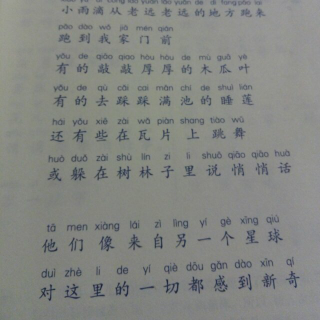 小雨滴从老远老远的地方跑来
pǎo dào wǒ jiā mén qián
跑到我家门前
yǒu de qiāo qiāo hòu hòu de mù guā yè
有的敲敲厚厚的木瓜叶
yǒu de qù cǎi cai mǎn chí de shuì lián
有的去踩踩满池的睡莲
hái yǒu xiē zài wǎ piàn shang tiào wǔ
还有些在瓦片上跳舞
huò duǒ zài shù lín zi li shuō qiāo qiāo huà
或躲在树林子里说悄悄话
tā men xiàng lái zì lìng yí gè xīng qiú
他们像来自另一个星球
duì zhè li de yí qiè dōu gǎn dào xīn qí
对这里的一切都感到新奇